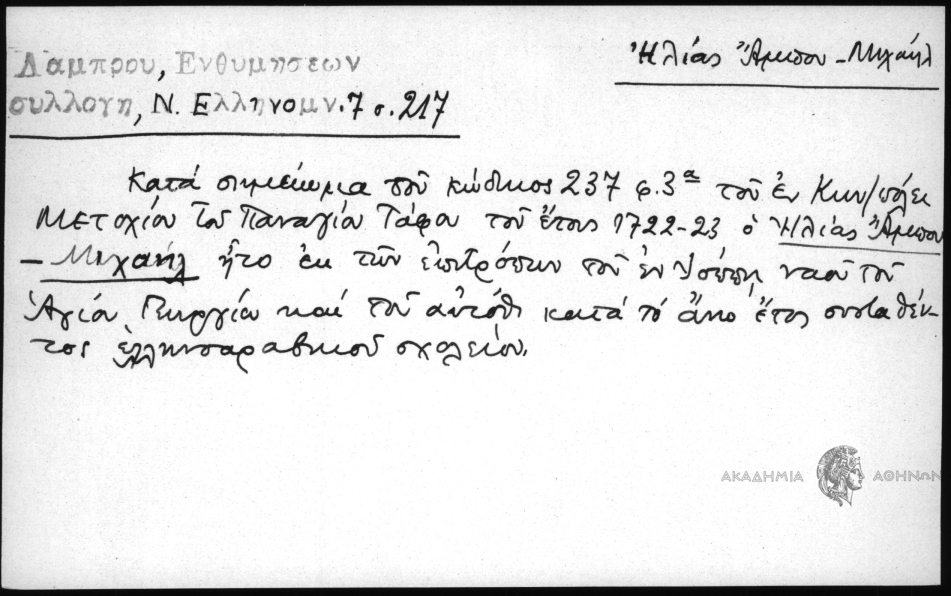 Λαμπρου, Ενθυμησεων
συλλογη, Ν. Ελληνομν. 7 σ. 217
Ἠλίας Ἄμπου - Μιχαήλ
Κατά σημείωμα τοῦ κώδικος 237 φ. 3α τοῦ ἐν Κων/πόλει
Μετοχίου τοῦ Παναγίου Τάφου τοῦ ἔτους 1722-23 ὁ Ἠλίας Ἄμπου
- Μιχαήλ ἦτο ἐκ τῶν ἐπιτρόπων τοῦ ἐν Ἰόππῃ ναοῦ τοῦ
Ἁγίου Γεωργίου καί τοῦ αὐτόθι κατά τό ἔτος συσταθέν
τος ἑλληνοαραβικοῦ σχολείου.
ΑΚΑΔΗΜΙΑ ΑΘΗΝΩΝ